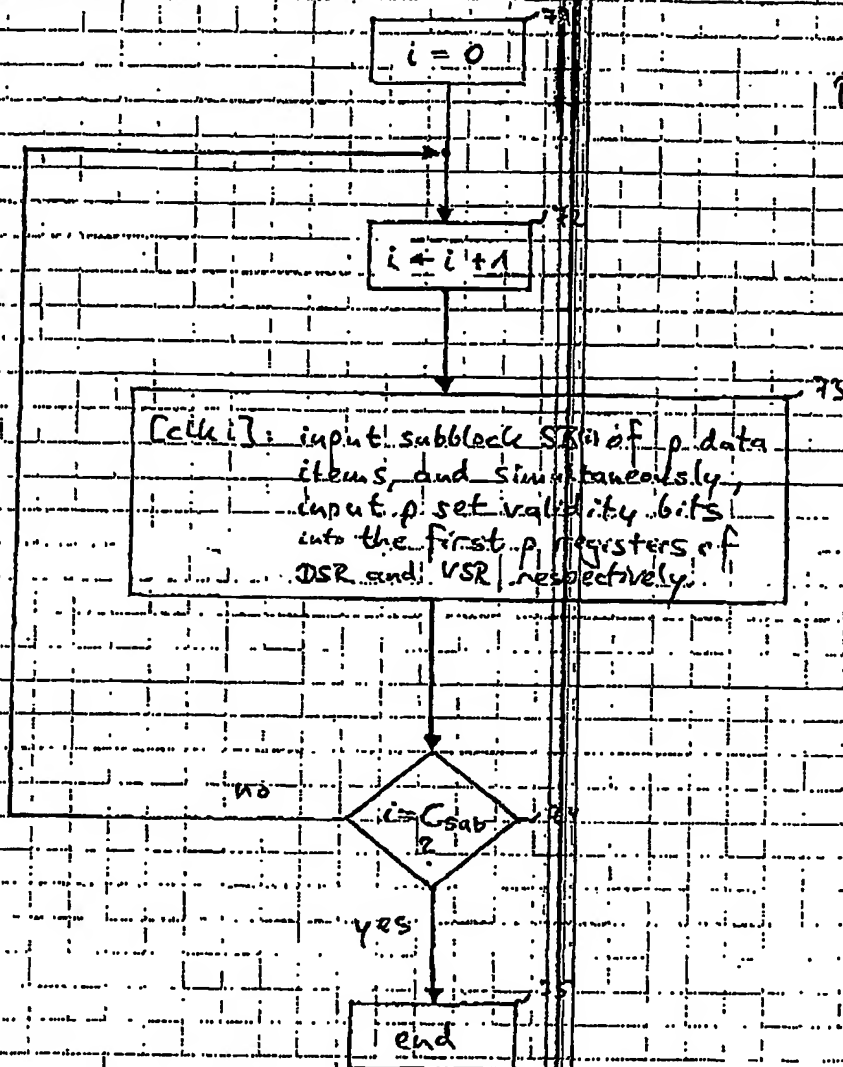 i = 0
i ← i + 1
73
[clk i]: input subblock SB(i) of p data
items, and simultaneously,
input p set validity bits
into the first p registers of
DSR and VSR respectively.
no
i = Csab
?
yes
end